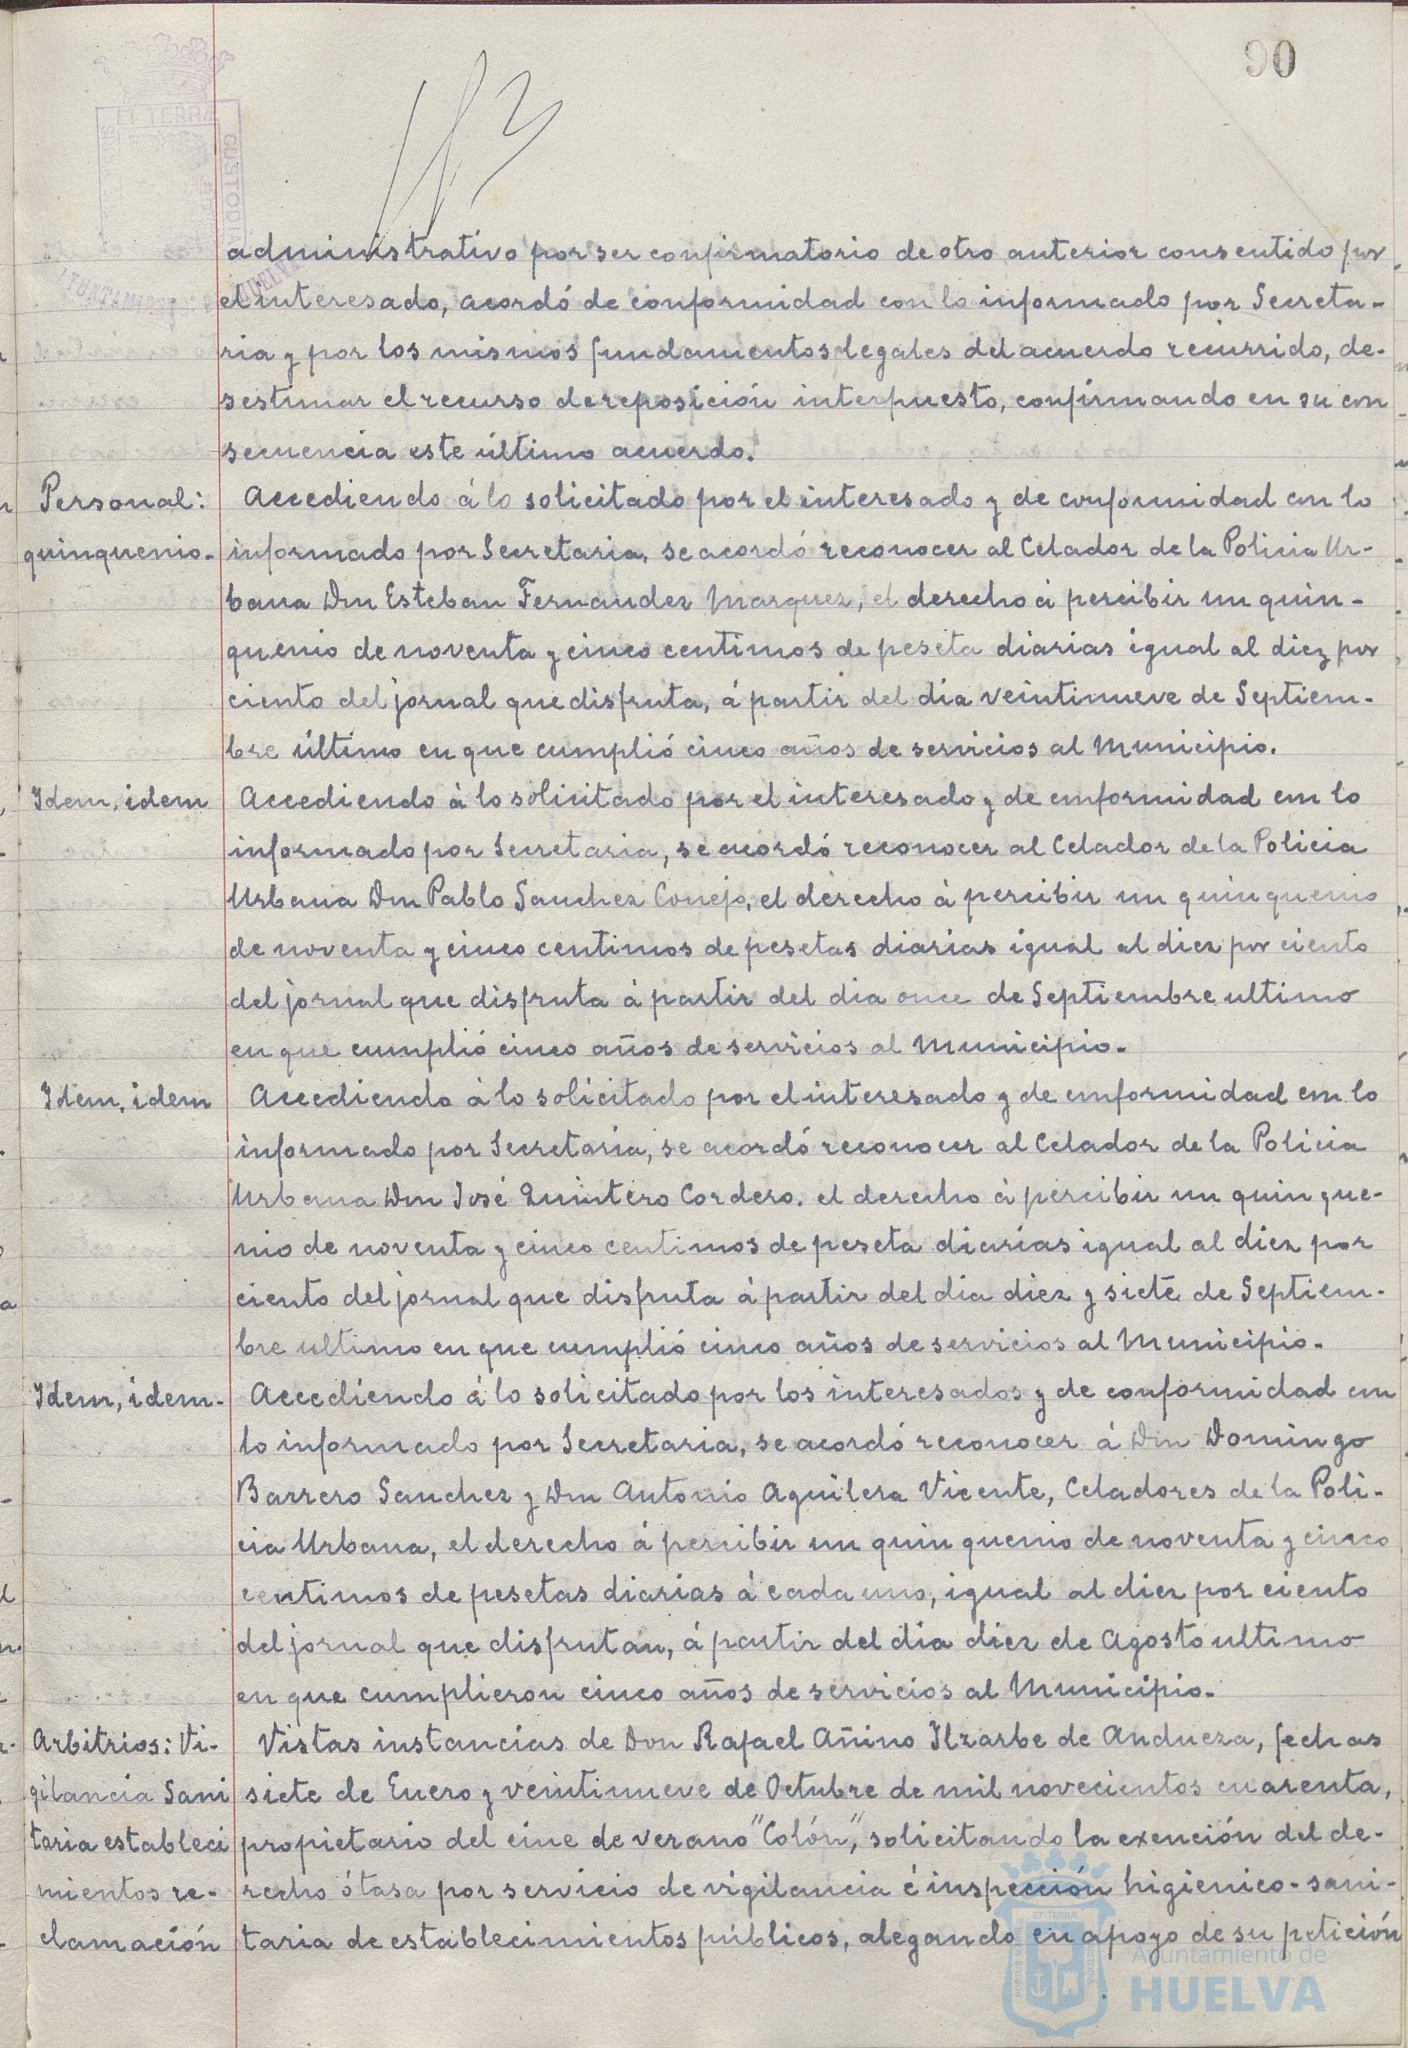 90
ET TERRÆ
CUSTODIA
administrativo por ser confirmatorio de otro anterior consentido por
el interesado, acordó de conformidad con lo informado por Secreta-
ria y por los mismos fundamentos legales del acuerdo recurrido, de-
sestimar el recurso de reposición interpuesto, confirmando en su con
secuencia este último acuerdo.
Personal: Accediendo á lo solicitado por el interesado y de conformidad con lo
quinquenio- informado por Secretaria, se acordó reconocer al Celador de la Policia Ur-
bana Don Esteban Fernandez Marquez, el derecho á percibir un quin-
quenio de noventa y cinco centimos de peseta diarias igual al diez por
ciento del jornal que disfruta, á partir del dia veintinueve de Septiem-
bre último en que cumplió cinco años de servicios al Municipio.
Idem, idem Accediendo á lo solicitado por el interesado y de conformidad con lo
informado por Secretaria, se acordó reconocer al Celador de la Policia
Urbana Don Pablo Sanchez Conejo, el derecho á percibir un quinquenio
de noventa y cinco centimos de pesetas diarias igual al diez por ciento
del jornal que disfruta á partir del dia once de Septiembre ultimo
en que cumplió cinco años de servicios al Municipio.
Idem, idem Accediendo á lo solicitado por el interesado y de conformidad con lo
informado por Secretaria, se acordó reconocer al Celador de la Policia
Urbana Don José Quintero Cordero, el derecho á percibir un quinque-
nio de noventa y cinco centimos de peseta diarias igual al diez por
ciento del jornal que disfruta á partir del dia diez y siete de Septiem-
bre ultimo en que cumplió cinco años de servicios al Municipio.
Idem, idem. Accediendo á lo solicitado por los interesados y de conformidad con
lo informado por Secretaria, se acordó reconocer á Don Domingo
Barrero Sanchez y Don Antonio Aguilera Vicente, Celadores de la Poli-
cia Urbana, el derecho á percibir un quinquenio de noventa y cinco
centimos de pesetas diarias á cada uno, igual al diez por ciento
del jornal que disfrutan, á partir del dia diez de Agosto ultimo
en que cumplieron cinco años de servicios al Municipio.
Arbitrios: Vi- Vistas instancias de Don Rafael Añino Ilzarbe de Andueza, fechas
gilancia Sani siete de Enero y veintinueve de Octubre de mil novecientos cuarenta,
taria estableci propietario del cine de verano "Colón", solicitando la exención del de-
mientos re- recho ó tasa por servicio de vigilancia é inspección higienico-sani-
clamación taria de establecimientos públicos, alegando en apoyo de su petición
Ayuntamiento de
HUELVA